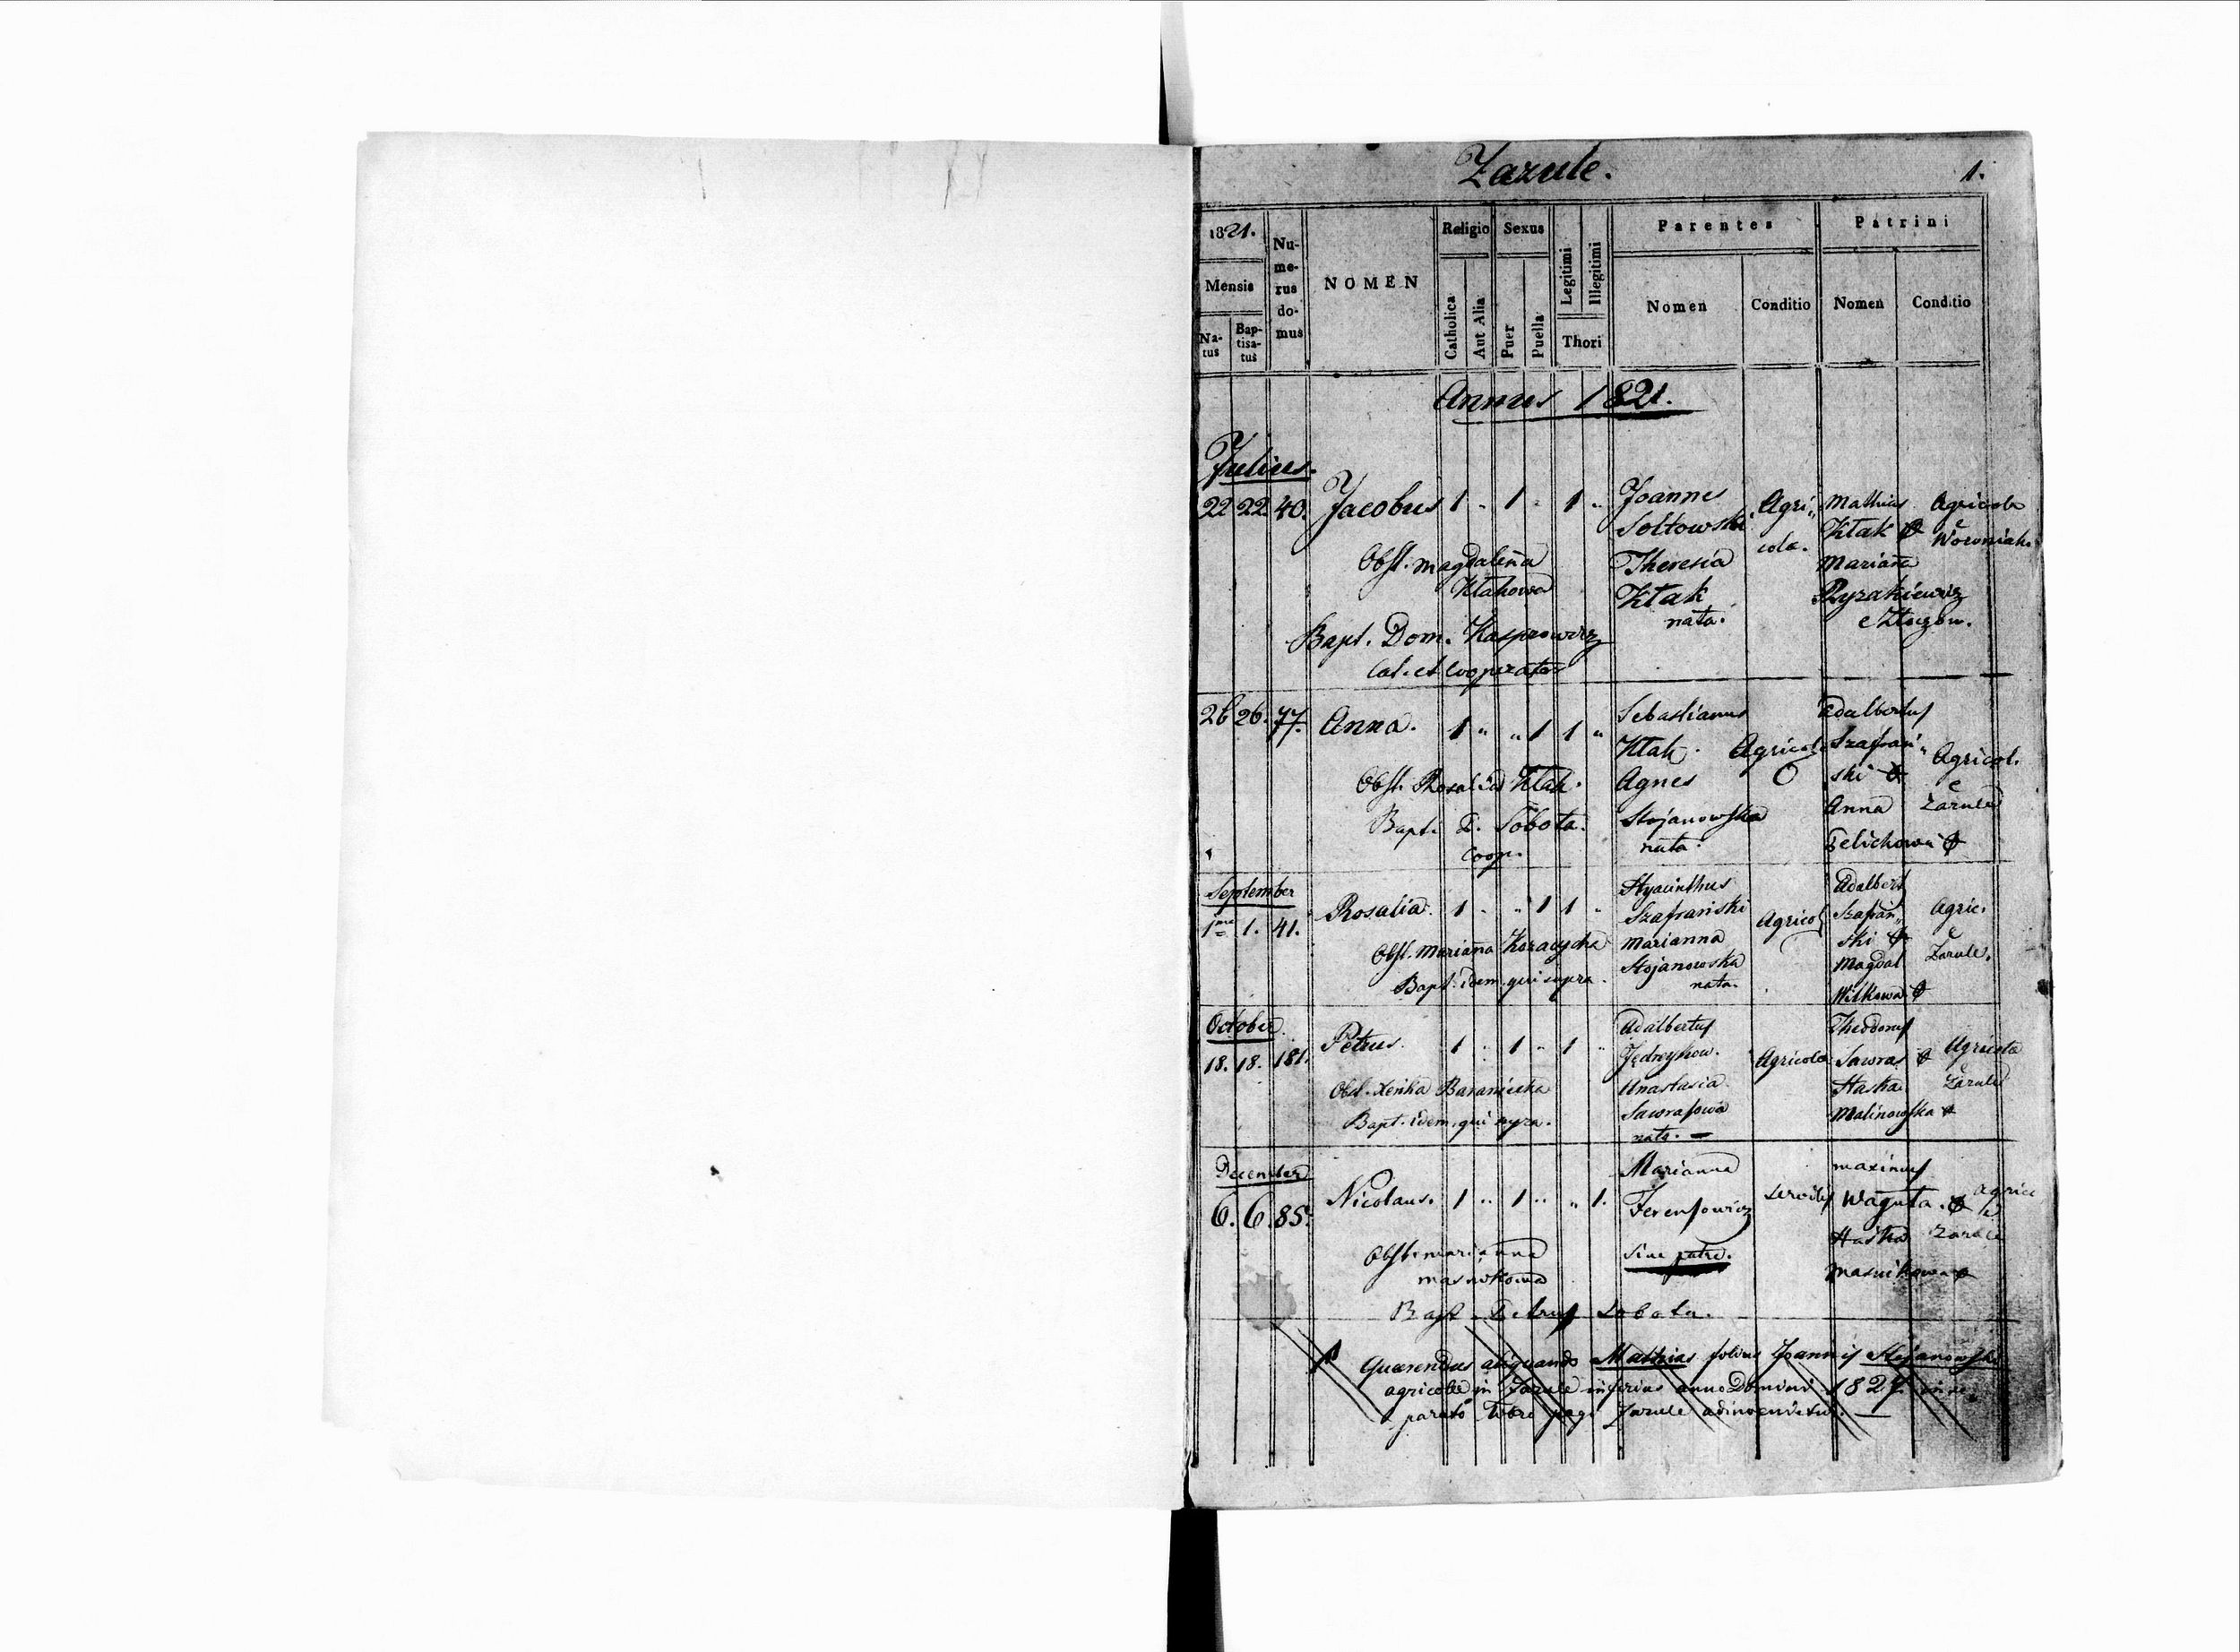 Zazule. 1.
1821. Numerus domus NOMEN Religio Sexus Legitimi Illegitimi Parentes Patrini
Mensis
Natus Baptisatus Catholica Aut Alia Puer Puella Thori Nomen Conditio Nomen Conditio
Annus 1821.
Julius.
22 22. 40. Jacobus 1 " 1 " 1 " Joannes Agri" Mathias Agricola
Sołtowski cola. Kłak e Woroniaki
Obst. Magdalena Theresia Marianna
Kłakowa Kłak Ryzakiewicz
nata. e Złoczow.
Bapt. Dom. Kasprowicz
Cat. et Cooperator
26 26. 77. Anna. 1 " " 1 1 " Sebastianus Adalbertus
Kłak. Agricola Szafrań" Agricol.
Obst. Rosalia Kłak. Agnes ski e
Bapt. D. Sobota. Stojanowska Anna Zazule
Coop. nata.
September
1ma 1. 41. Rosalia. 1 " " 1 1 " Hyacinthus Adalbert
Szafrański Agricol Szafrań" Agric.
Obst. Marianna Marianna ski e
Bapt. idem qui supra. Stojanowska Magdal Zazule.
nata. Witkowa
October.
18. 18. 181. Petrus. 1 " 1 " 1 " Adalbertus Theodorus
Jędrzykow. Agricola Sawras Agricola
Obst. Xenka Baraniecka Anastasia Haska Zazule
Bapt. idem qui supra. Sawrasowa Malinowska
nata. —
December
6. 6. 85. Nicolaus. 1 " 1 " " 1. Marianna Maximus
Ferensowicz Waguta. Agric
Obst. Marianna Sine patre. Haska Zazule
Masnikowa Masnikowa
Bapt. Petrus Sobota.
Quaerendus aliquando Mathias filius Joannis Stojanowski
agricolae in Zazule inferius anno Domini 1827 in se"
parato libro pagi Zazule